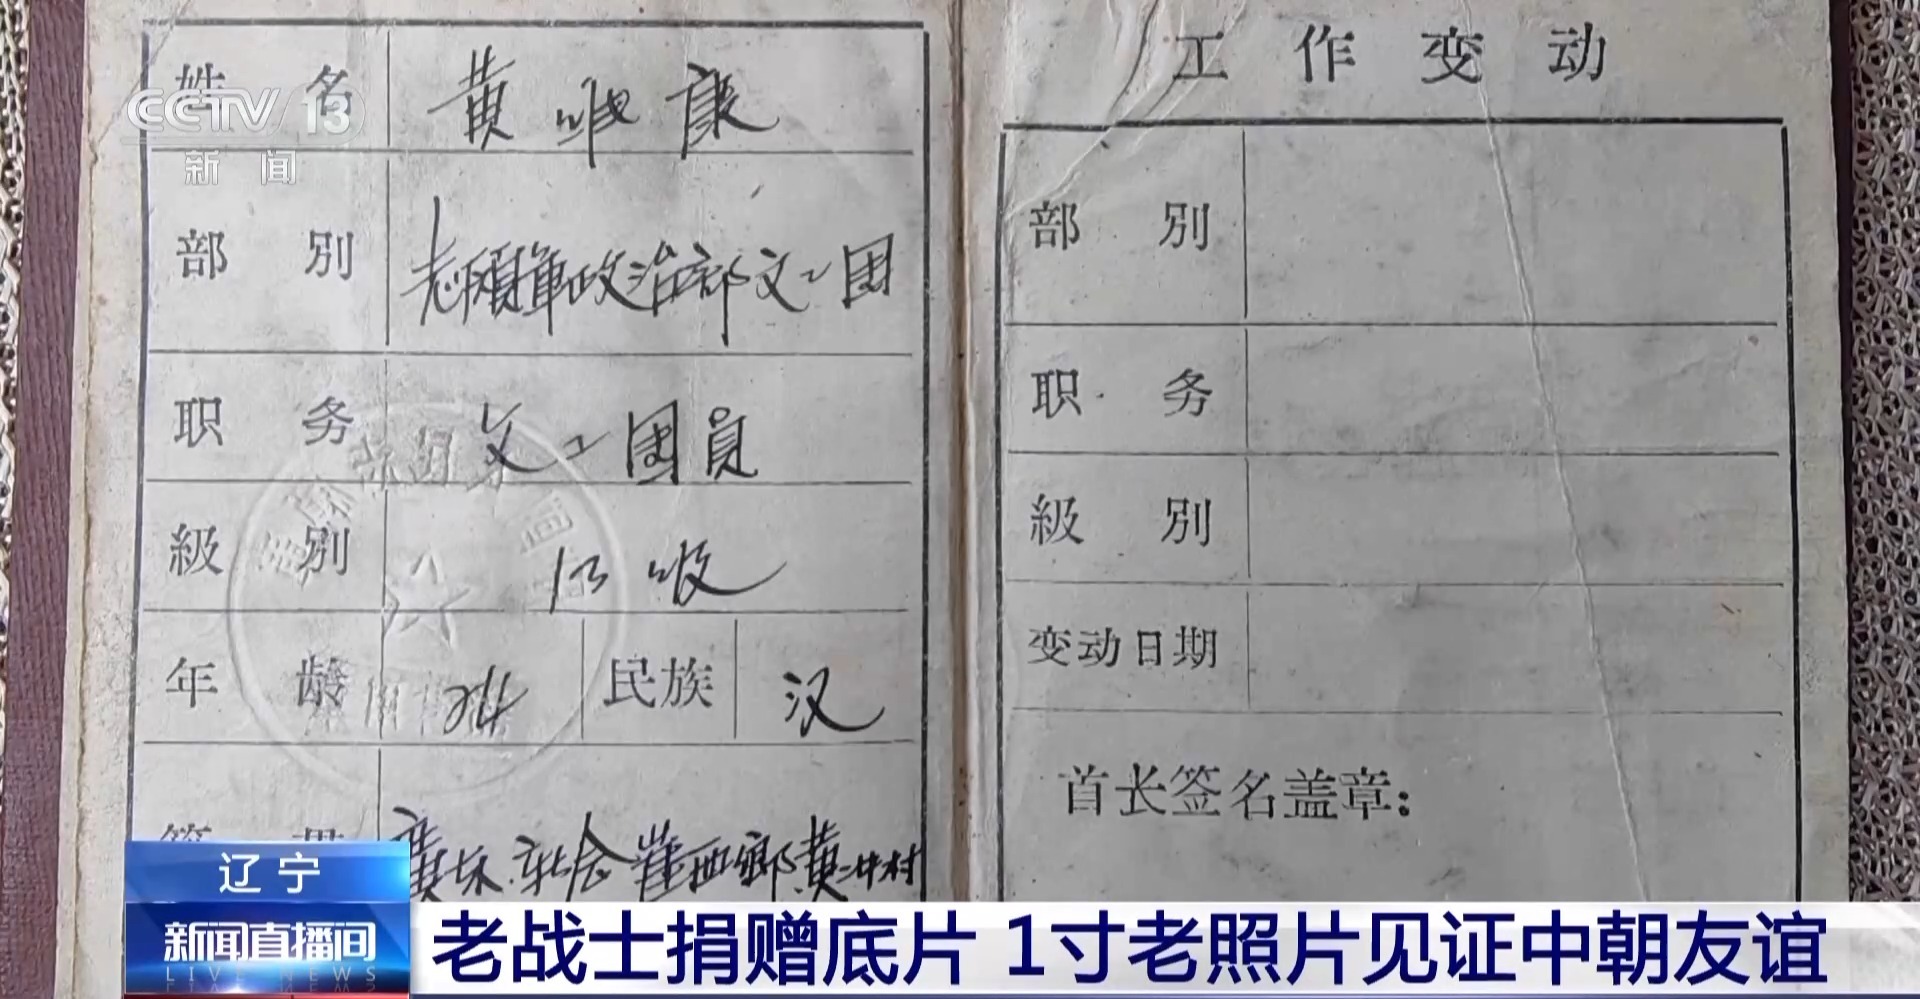 CCTV 13
新闻
姓名 黄唯康
部別 志願軍政治部文工团
职务 文工團員
級別 13級
年龄 24 民族 汉
籍贯 廣东 新会 崖西鄉 黄冲村
工作变动
部別
职务
級別
变动日期
首长签名盖章：
辽宁
新闻直播间
LIVE NEWS
老战士捐赠底片 1寸老照片见证中朝友谊